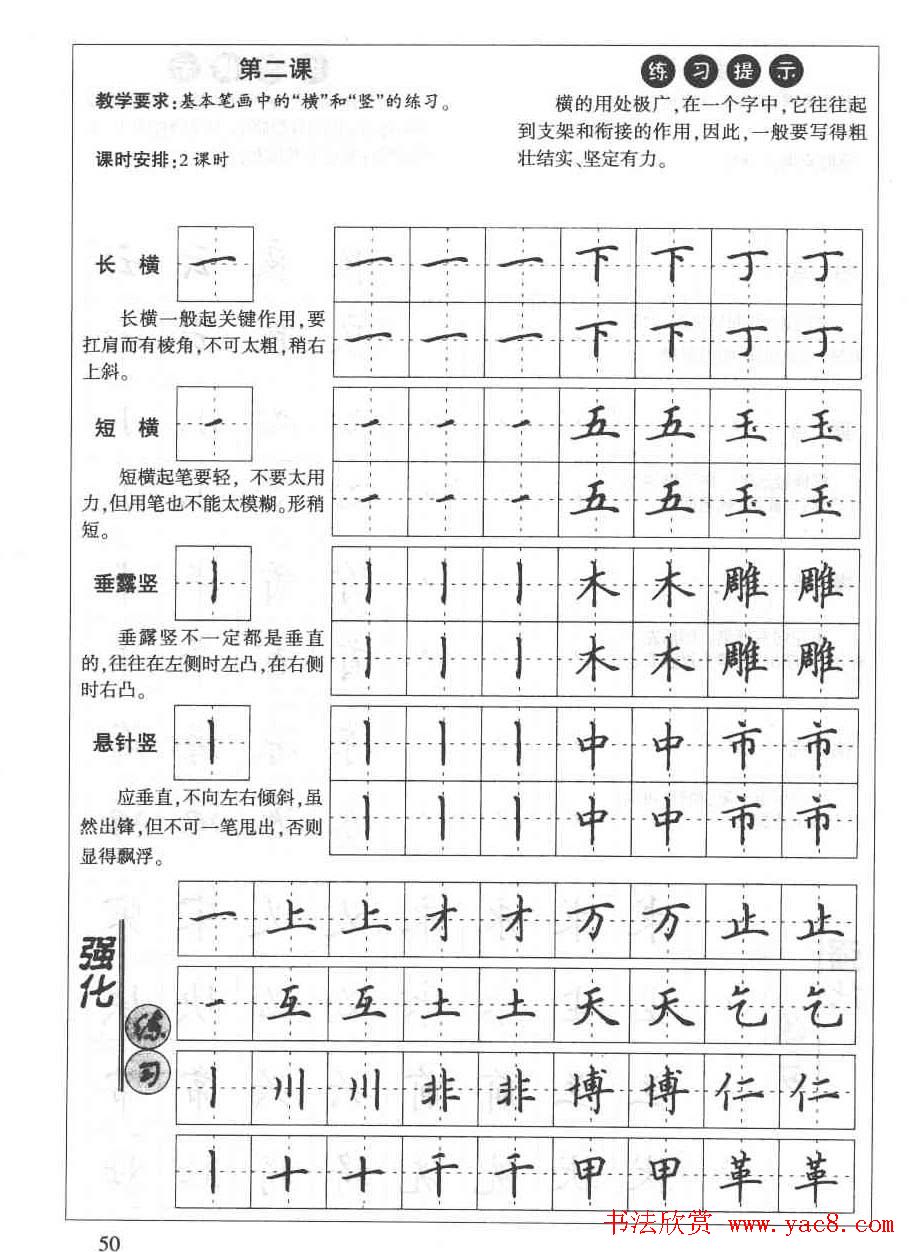 第二课
教学要求:基本笔画中的“横”和“竖”的练习。
课时安排:2课时
练习提示
横的用处极广,在一个字中,它往往起
到支架和衔接的作用,因此,一般要写得粗
壮结实、坚定有力。
长 横 一 一 一 一 下 下 丁 丁
一 一 一 下 下 丁 丁
长横一般起关键作用,要
扛肩而有棱角,不可太粗,稍右
上斜。
短 横 一 一 一 一 五 五 玉 玉
一 一 一 五 五 玉 玉
短横起笔要轻，不要太用
力,但用笔也不能太模糊。形稍
短。
垂露竖 丨 丨 丨 丨 木 木 雕 雕
丨 丨 丨 木 木 雕 雕
垂露竖不一定都是垂直
的,往往在左侧时左凸,在右侧
时右凸。
悬针竖 丨 丨 丨 丨 中 中 市 市
丨 丨 丨 中 中 市 市
应垂直,不向左右倾斜,虽
然出锋,但不可一笔甩出,否则
显得飘浮。
强化
练习
一 上 上 才 才 万 万 止 止
一 互 互 土 土 天 天 乞 乞
丨 川 川 非 非 博 博 仁 仁
丨 十 十 干 干 甲 甲 革 革
书法欣赏 www.yac8.com
50